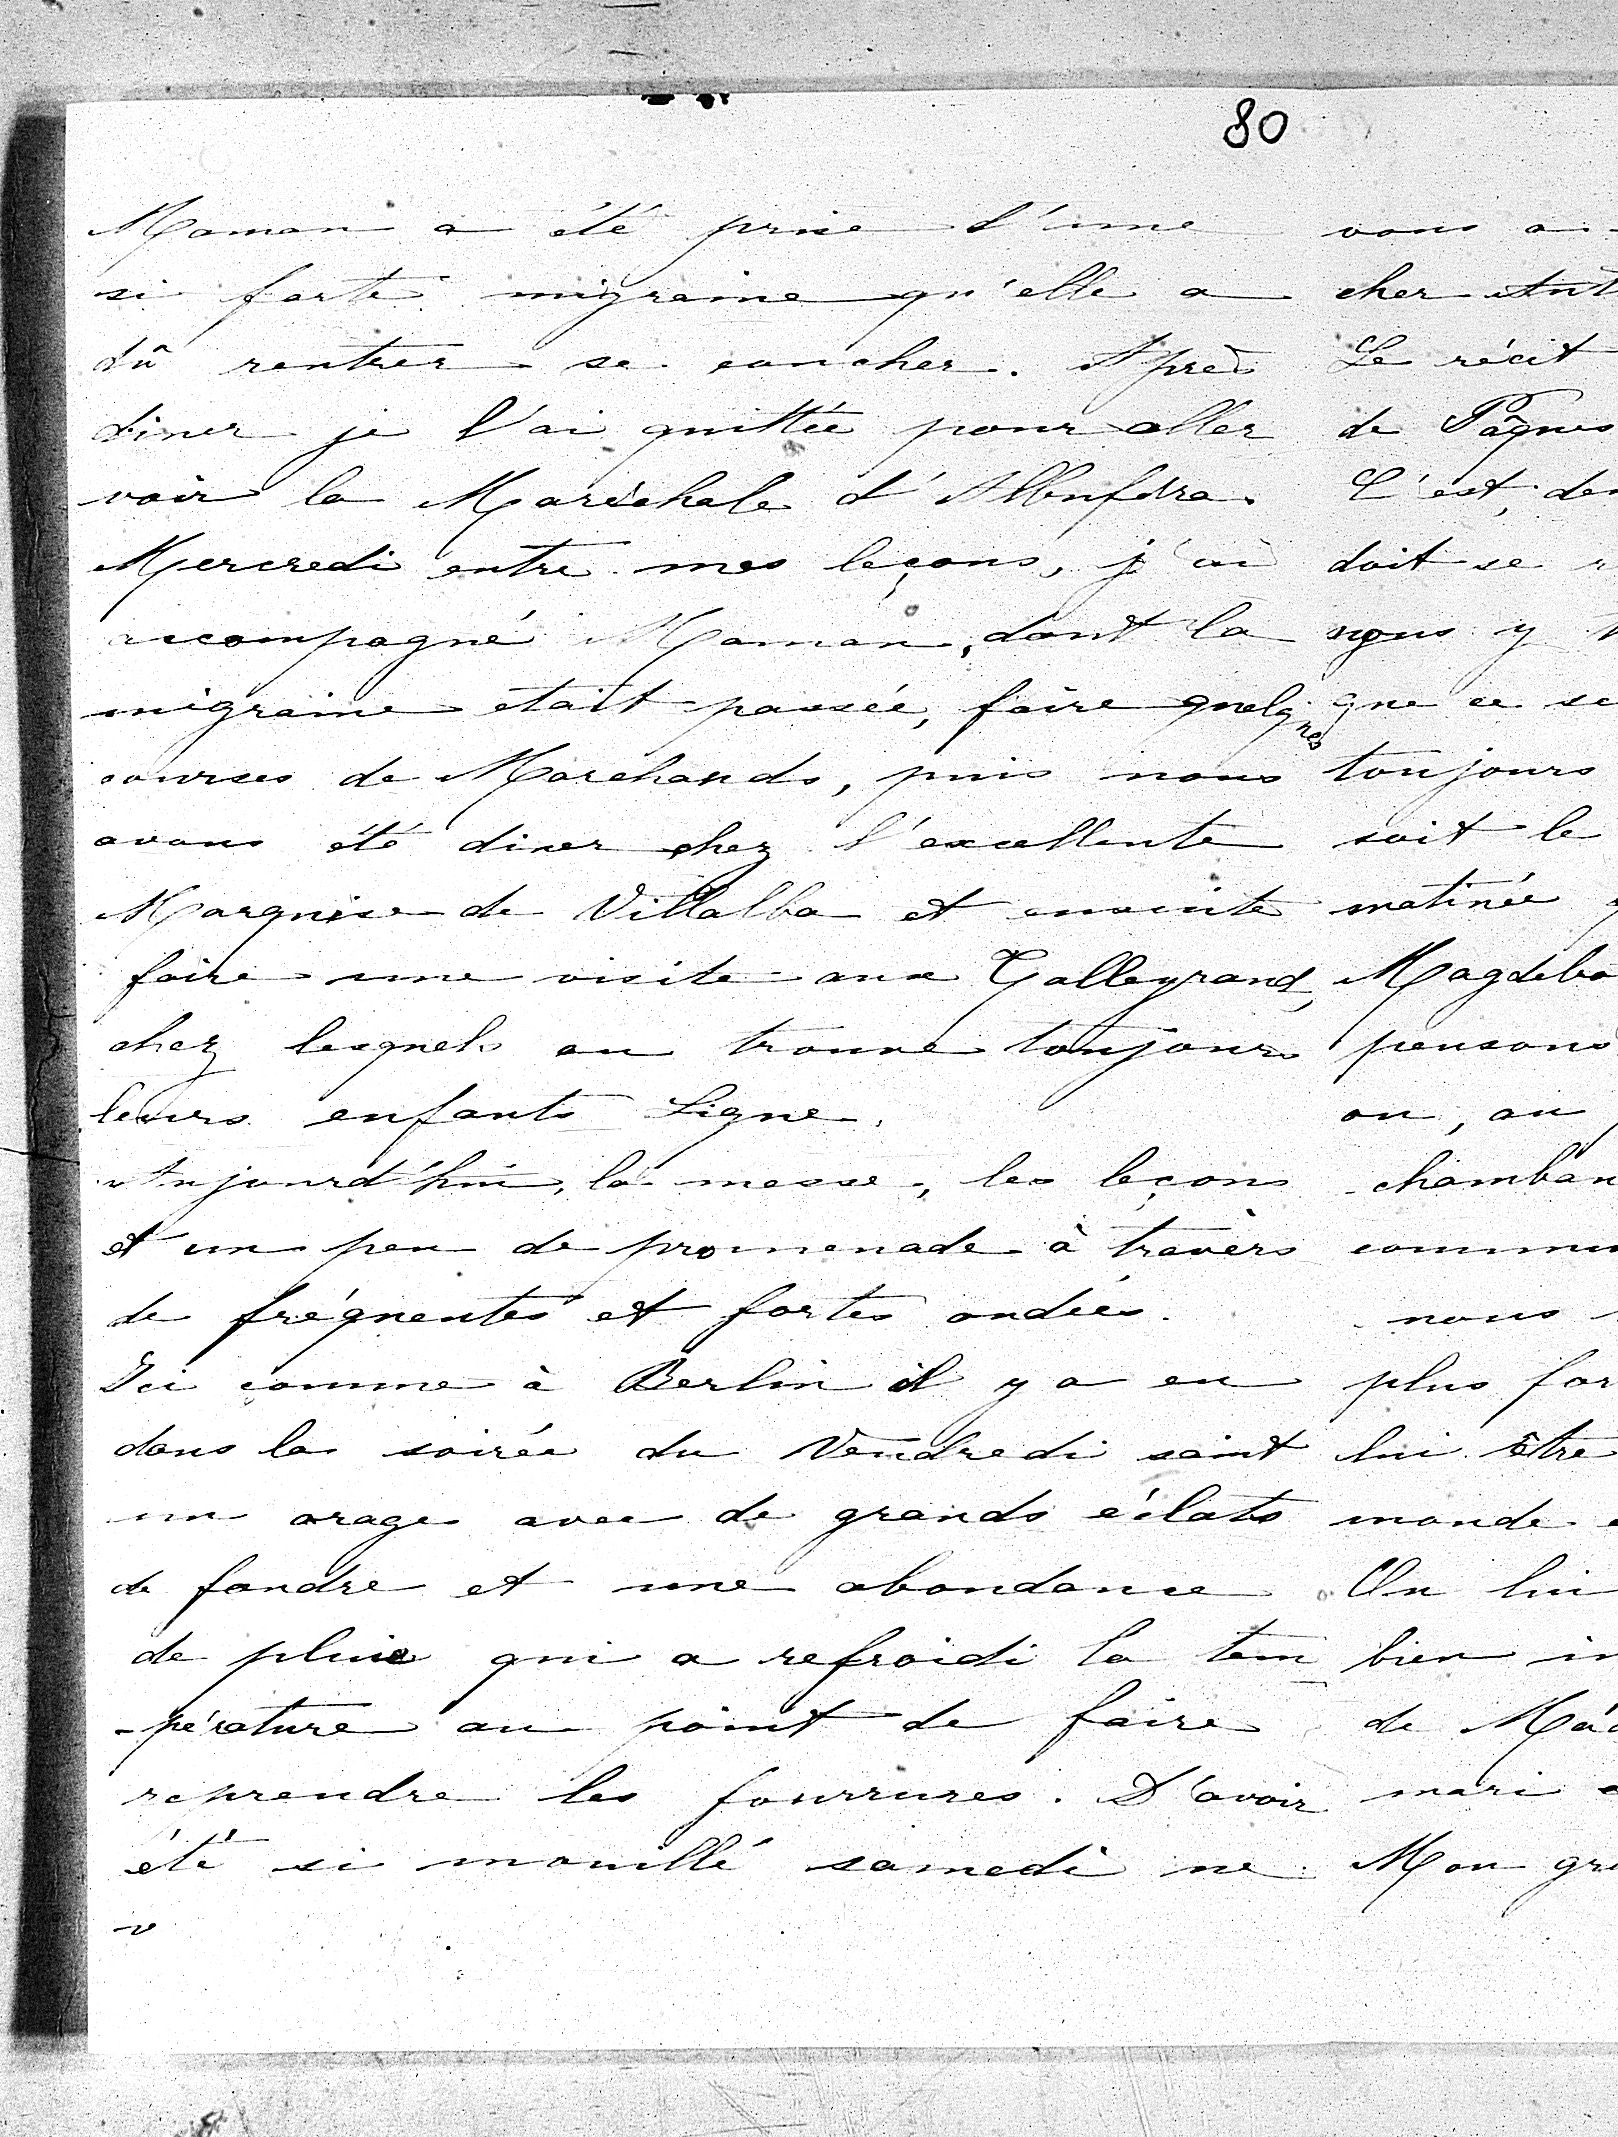 80
Maman a été prise d'une
si forte migraine qu'elle a
dû rentrer se coucher. Après
diner je l'ai quittée pour aller
voir la Maréchale d'Albuféra.
Mercredi entre mes leçons, j'ai
accompagné Maman, dont la
migraine était passée, faire quelques
courses de Marchands, puis nous
avons été diner chez l'excellente
Marquise de Villalba et ensuite
faire une visite aux Talleyrand,
chez lesquels on trouve toujours
leurs enfants Ligne.
Aujourd'hui, la messe, les leçons
et un peu de promenade à travèrs
de fréquentes et fortes ondées.
Ici comme à Berlin il y a eu
dans la soirée du Vendredi saint
un orage avec de grands éclats
de foudre et une abondance
de pluie qui a refroidi la tem
-pérature au point de faire
reprendre les fourrures. D'avoir
été si mouillé samedi ne
vous a
cher
Le récit
de Pâques
C'est,
doit se
nous y
que ce
toujours
soit le
matinée
pensons
ou, au
nous
plus
lui être
monde
On lui
bien
de
mari
Mon